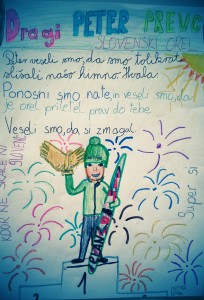 Dragi PETER PREVC
SLOVENSKI OREL
Peter veseli smo, da smo tolikrat
slišali našo himno. Hvala.
Ponosni smo nate, in veseli smo, da
je orel priletel prav do tebe.
Veseli smo, da si zmagal.
KDOR NE SKAČE NI
SLOVENC
Super si
1